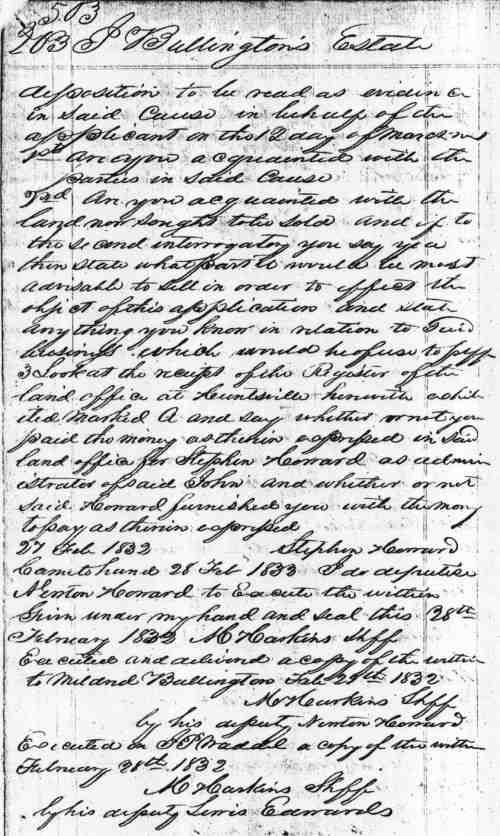 503
203 J Bullington's Estate
deposition to be read as evidence
in Said Cause in behalf of the
applicant on the 12 day of March
1st Are you acquainted with the
parties in Said Cause
2nd Are you acquainted with the
land now sought to be sold and if to
the second interrogatory you say yea
then state what part it would be most
advisable to sell in order to effect the
object of this application and state
any thing you know in relation to Said
business which would be of use to plff
3 Look at the receipt of the Register of the
land office at Huntsville herewith exhib
ited marked A and say whether or not you
paid the money as therein expressed in Said
land office for Stephen Howard as admin
istrator of said John and whether or not
said Howard furnished you with the mony
to pay as therein expressed
27 Feb 1832 Stephen Howard
Came to hand 28 Feb 1832 I do deputise
Newton Howard to Execute the within
Given under my hand and seal this 28th
February 1832 M Harkins Shff
Executed and delivered a copy of the within
to Mildred Bullington Feb 29th 1832
M Harkins Shff
by his deputy Newton Howard
Executed on Waddel a copy of the within
February 28th 1832
M Harkins Shff
by his deputy Lewis Edwards